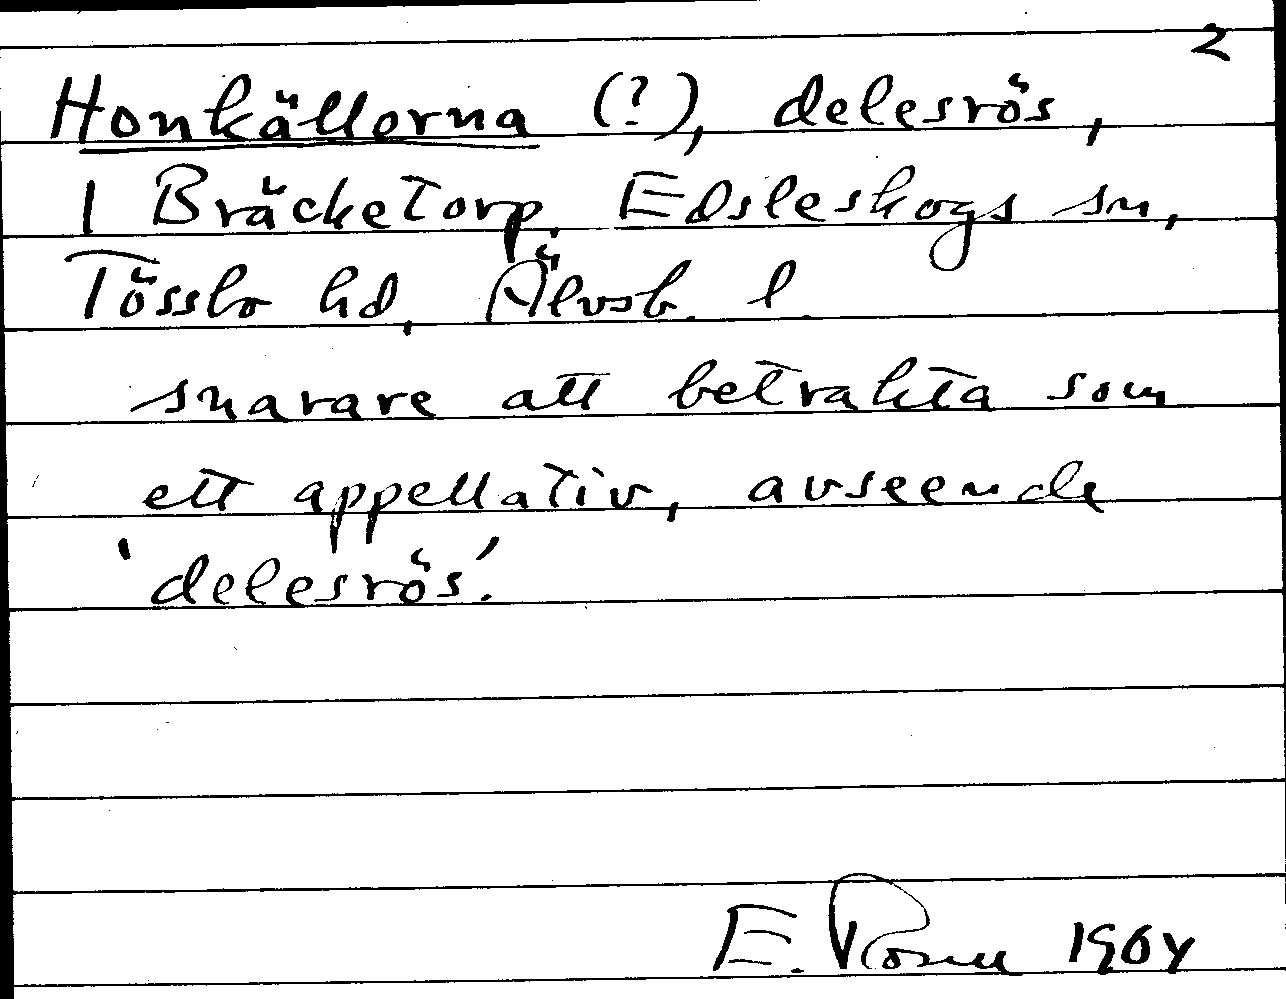 2
Honkällorna (?), delesrös,
1 Bräcketorp, Edsleskogs sn,
Tössbo hd, Älvsb. l.
snarare att betrakta som
ett appellativ, avseende
'delesrös'.
E. Rosell 1964